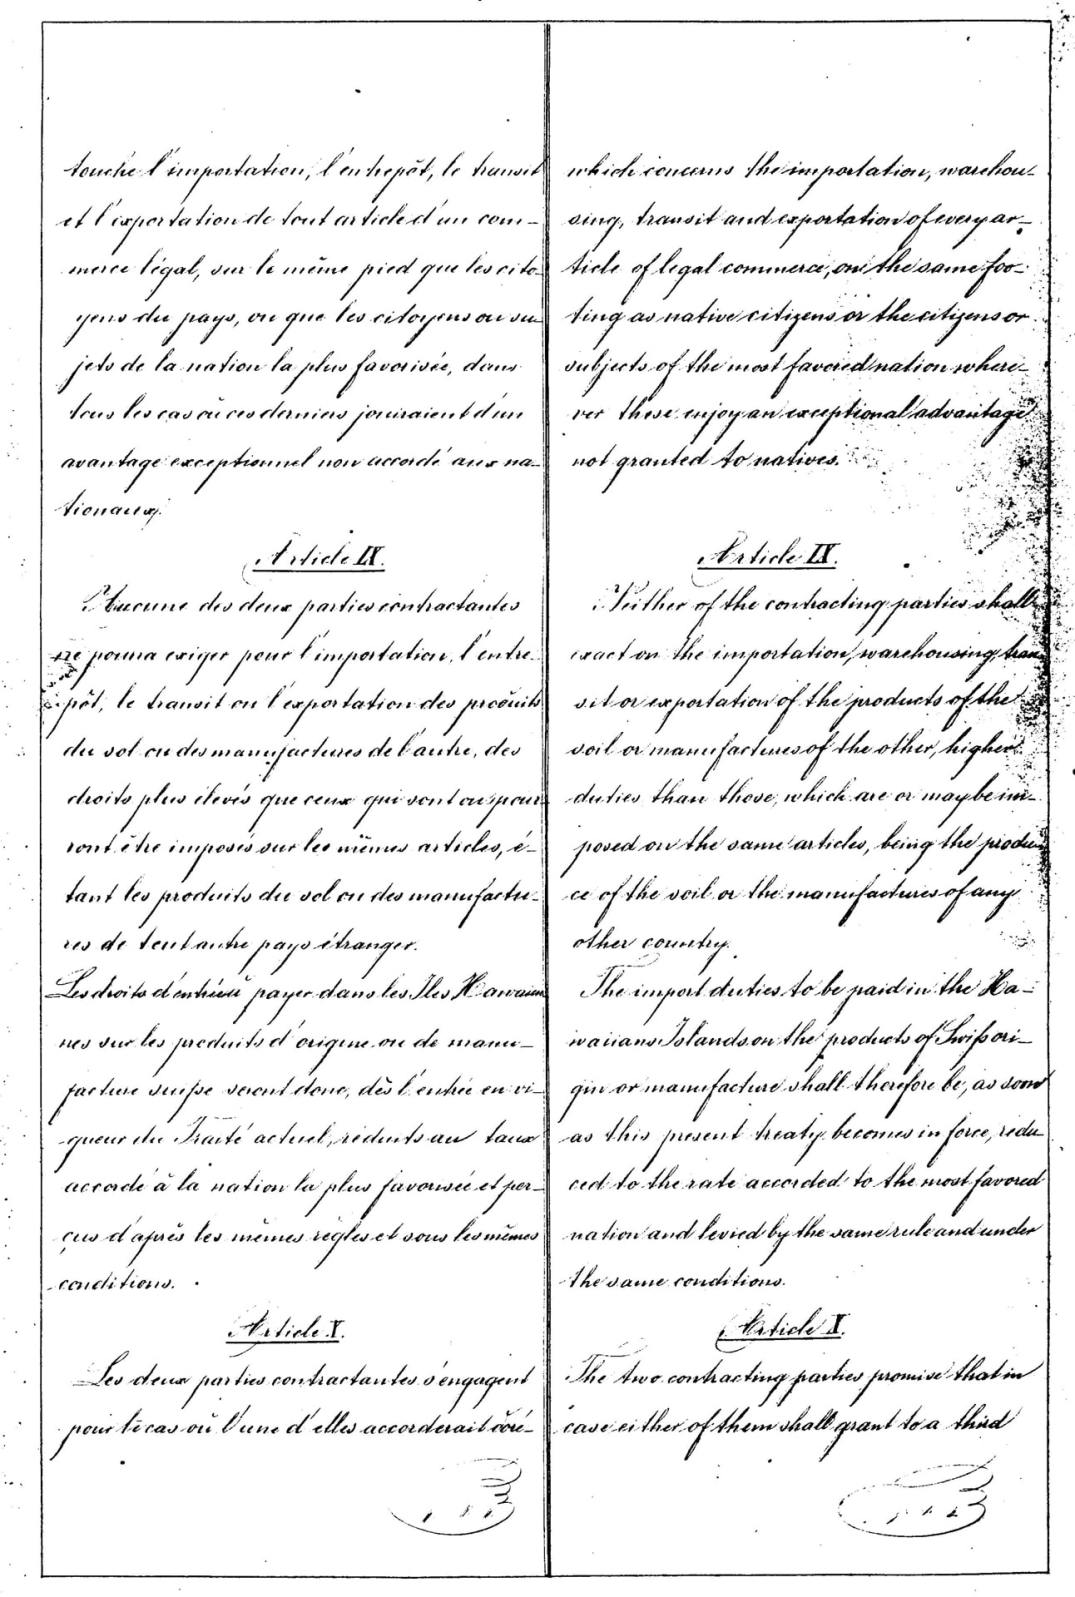 touche l'importation, l'entrepôt, le transit
et l'exportation de tout article d'un com-
merce légal, sur le même pied que les cito-
yens du pays, ou que les citoyens ou su-
jets de la nation la plus favorisée, dans
tous les cas où ces derniers jouiraient d'un
avantage exceptionnel non accordé aux na-
tionaux.
Article IX.
Aucune des deux parties contractantes
ne pourra exiger pour l'importation, l'entre-
pôt, le transit ou l'exportation des produits
du sol ou des manufactures de l'autre, des
droits plus élevés que ceux qui sont ou pour-
ront être imposés sur les mêmes articles, é-
tant les produits du sol ou des manufactu-
res de tout autre pays étranger.
Les droits d'entrée à payer dans les Iles Hawaien-
nes sur les produits d'origine ou de manu-
facture suisse seront donc, dès l'entrée en vi-
gueur du Traité actuel, réduits au taux
accordé à la nation la plus favorisée et per-
çus d'après les mêmes règles et sous les mêmes
conditions.
Article X.
Les deux parties contractantes s'engagent
pour le cas où l'une d'elles accorderait doré-
which concerns the importation, warehou-
sing, transit and exportation of every ar-
ticle of legal commerce, on the same foo-
ting as native citizens or the citizens or
subjects of the most favored nation where-
ver these enjoy an exceptional advantage
not granted to natives.
Article IX.
Neither of the contracting parties shall
exact on the importation, warehousing, tran-
sit or exportation of the products of the
soil or manufactures of the other, higher
duties than those, which are or may be im-
posed on the same articles, being the produ-
ce of the soil or the manufactures of any
other country.
The import duties to be paid in the Ha-
waiians Islands on the products of Swiss ori-
gin or manufacture shall therefore be, as soon
as this present treaty becomes in force, redu-
ced to the rate accorded to the most favored
nation and levied by the same rule and under
the same conditions.
Article X.
The two contracting parties promise that in
case either of them shall grant to a third